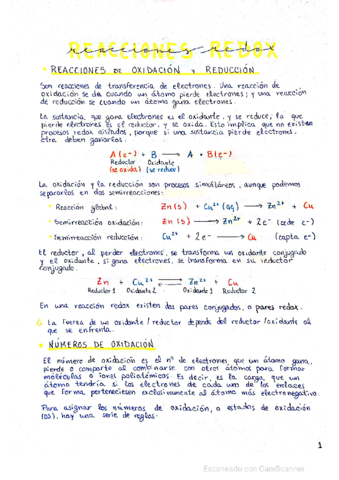 REACCIONES REDOX
• REACCIONES DE OXIDACIÓN Y REDUCCIÓN
Son reacciones de transferencia de electrones. Una reacción de
oxidación se da cuando un átomo pierde electrones; y una reacción
de reducción se cuando un átomo gana electrones.
La sustancia, que gana electrones es el oxidante, y se reduce; la que
pierde electrones es el reductor, y se oxida. Esto implica que no existen
procesos redox aislados, porque si una sustancia pierde electrones,
otra deben ganarlos.
A(e-) + B → A + B(e-)
Reductor Oxidante
(se oxida) (se reduce)
La oxidación y la reducción son procesos simultáneos, aunque podemos
separarlos en dos semirreacciones:
• Reacción global: Zn(s) + Cu²⁺(aq) → Zn²⁺ + Cu
• Semirreacción oxidación: Zn(s) → Zn²⁺ + 2e⁻ (cede e⁻)
• Semirreacción reducción: Cu²⁺ + 2e⁻ → Cu (capta e⁻)
El reductor, al perder electrones, se transforma un oxidante conjugado
y el oxidante, si gana electrones, se transforma en su reductor
conjugado.
Zn + Cu²⁺ ⇌ Zn²⁺ + Cu
Reductor 1 Oxidante 2 Oxidante 1 Reductor 2
En una reacción redox existen dos pares conjugados, o pares redox.
La fuerza de un oxidante / reductor depende del reductor/oxidante al
que se enfrenta.
• NÚMEROS DE OXIDACIÓN
El número de oxidación es el nº de electrones que un átomo gana,
pierde o comparte al combinarse con otros átomos para formar
moléculas o iones poliatómicos. Es decir, es la carga que un
átomo tendría si los electrones de cada uno de los enlaces
que forma perteneciesen exclusivamente al átomo más electronegativo.
Para asignar los números de oxidación, o estados de oxidación
(os), hay una serie de reglas:
1
Escaneado con CamScanner